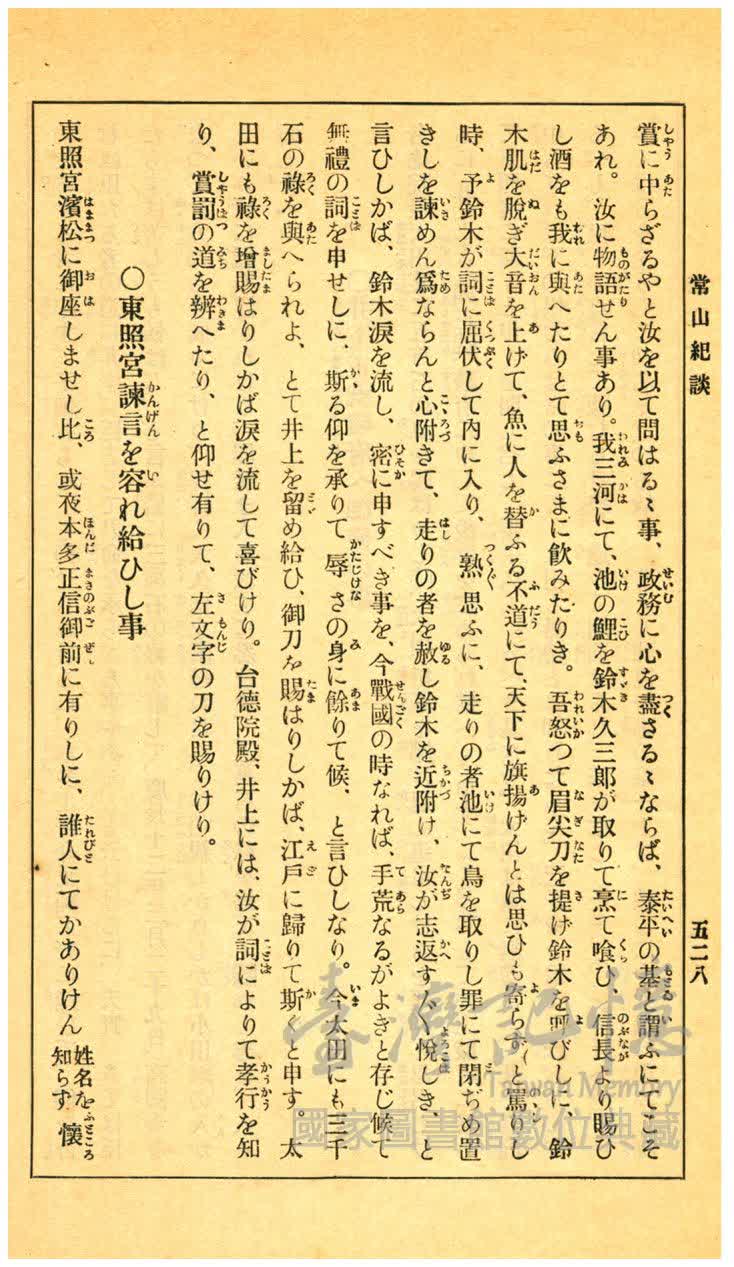 常山紀談
五二八
賞に中らざるやと汝を以て問はるゝ事、政務に心を盡さるゝならば、泰平の基と謂ふにてこそ
あれ。汝に物語せん事あり。我三河にて、池の鯉を鈴木久三郎が取りて烹て喰ひ、信長より賜ひ
し酒をも我に與へたりとて思ふさまに飮みたりき。吾怒つて眉尖刀を提げ鈴木を呼びしに、鈴
木肌を脫ぎ大音を上げて、魚に人を替ふる不道にて、天下に旗揚げんとは思ひも寄らずと罵りし
時、予鈴木が詞に屈伏して內に入り、熟思ふに、走りの者池にて鳥を取りし罪にて閉ぢめ置
きしを諫めん爲ならんと心附きて、走りの者を赦し鈴木を近附け、汝が志返す〲悅しき、と
言ひしかば、鈴木淚を流し、密に申すべき事を、今戰國の時なれば、手荒なるがよきと存じ候て
無禮の詞を申せしに、斯る仰を承りて辱さの身に餘りて候、と言ひしなり。今太田にも三千
石の祿を與へられよ、とて井上を留め給ひ、御刀を賜はりしかば、江戶に歸りて斯くと申す。太
田にも祿を增賜はりしかば淚を流して喜びけり。台德院殿、井上には、汝が詞によりて孝行を知
り、賞罰の道を辨へたり、と仰せ有りて、左文字の刀を賜りけり。
○東照宮諫言を容れ給ひし事
東照宮濱松に御座しませし比、或夜本多正信御前に有りしに、誰人にてかありけん 姓名を知らず 懷
臺灣記憶
Taiwan Memory
國家圖書館數位典藏